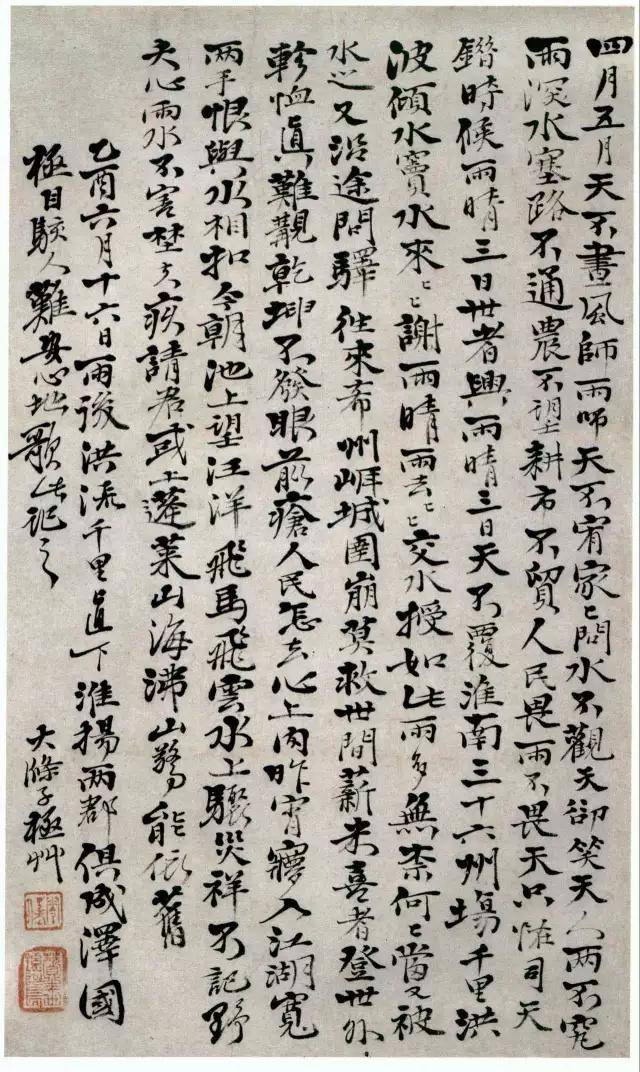 四月五月天不晝風師雨師天不宥家〻問水不觀天卻笑天人兩不究
雨深水塞路不通農不望耕市不貿人民畏雨不畏天只怪司天
錯時候雨晴三日世者興雨晴三日天不覆淮南三十六州場千里洪
波傾水竇水來〻〻謝雨晴雨去〻〻交水授如此雨多無柰何〻當又被
水又沿途問驛往來希州城圍崩莫救世間薪米喜者登世外
軫恤真難覯乾坤不發眼前瘡人民怎去心上肉昨宵夢入江湖寬
兩手恨與水相扣今朝池上望汪洋飛馬飛雲水上驟災祥不記野
夫心雨水不害埜夫疾請君或上蓬萊山海沸山能依舊
乙酉六月十六日雨後洪流千里直下淮揚兩都俱成澤國
極目駭人難安心地歌此記之
大滌子極艸